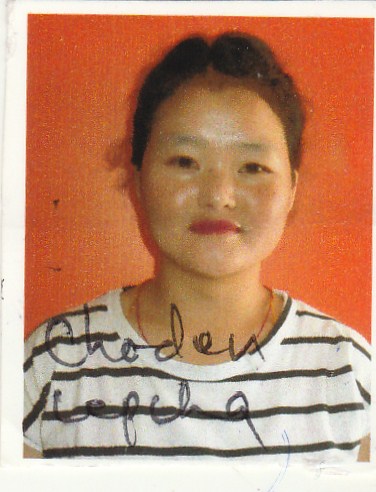 Choden
Lepcha